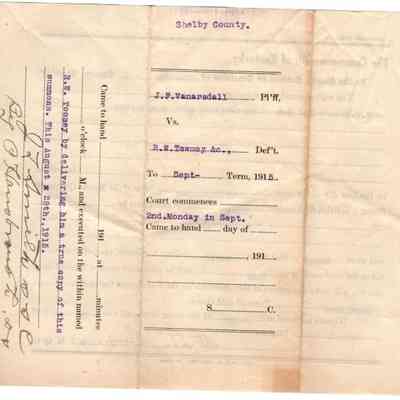 Shelby County.
J.F.Vanarsdall Pl'ff,
Vs.
R.E.Toomey &c., Def't.
To Sept- Term, 1915.
Court commences
2nd.Monday in Sept.
Came to hand day of
, 191
S. C.
Came to hand 191 , at minutes
o'clock M., and executed on the within named
R.E. Toomey by delivering him a true copy of this
summons. This August x 29th.,1915.